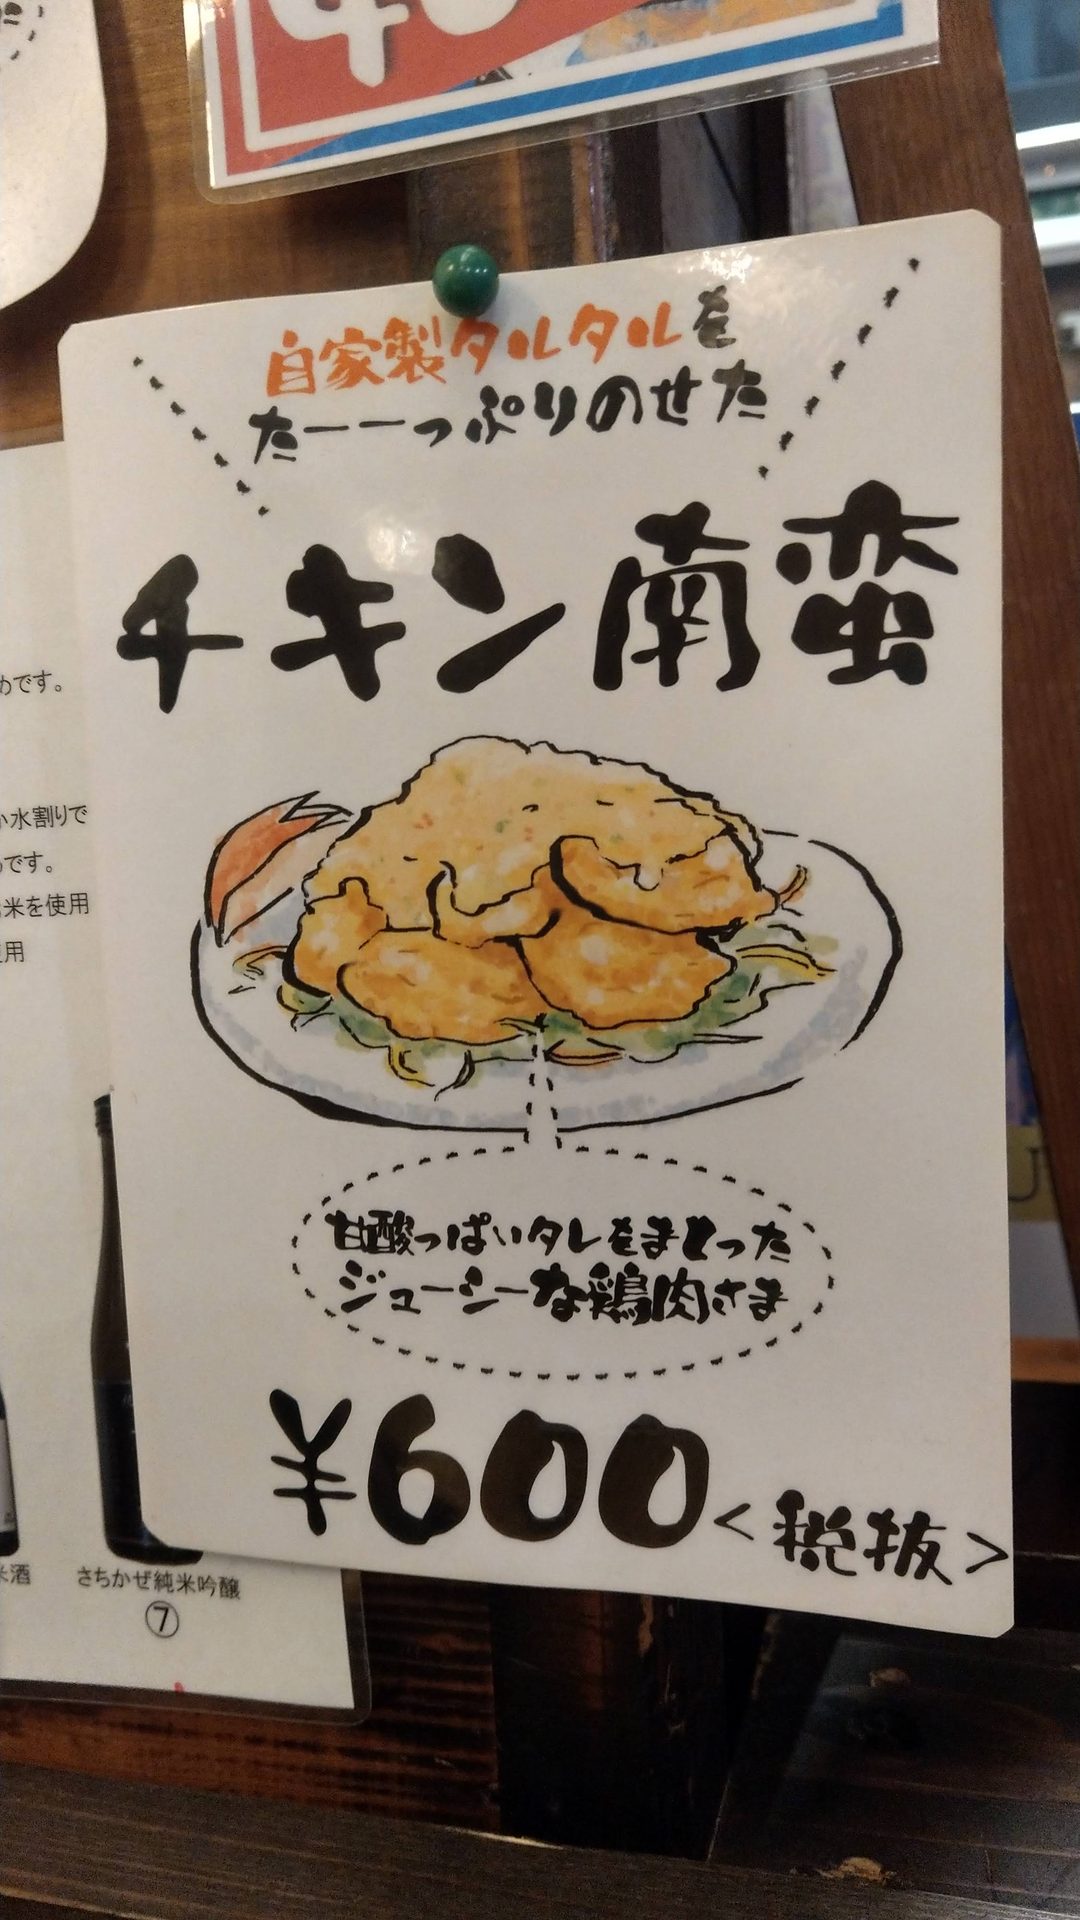 自家製タルタルを
たーーっぷりのせた
チキン南蛮
甘酸っぱいタレをまとった
ジューシーな鶏肉さま
¥600<税抜>
めです。
水割りで
です。
米を使用
用
米酒
さちかぜ純米吟醸
⑦